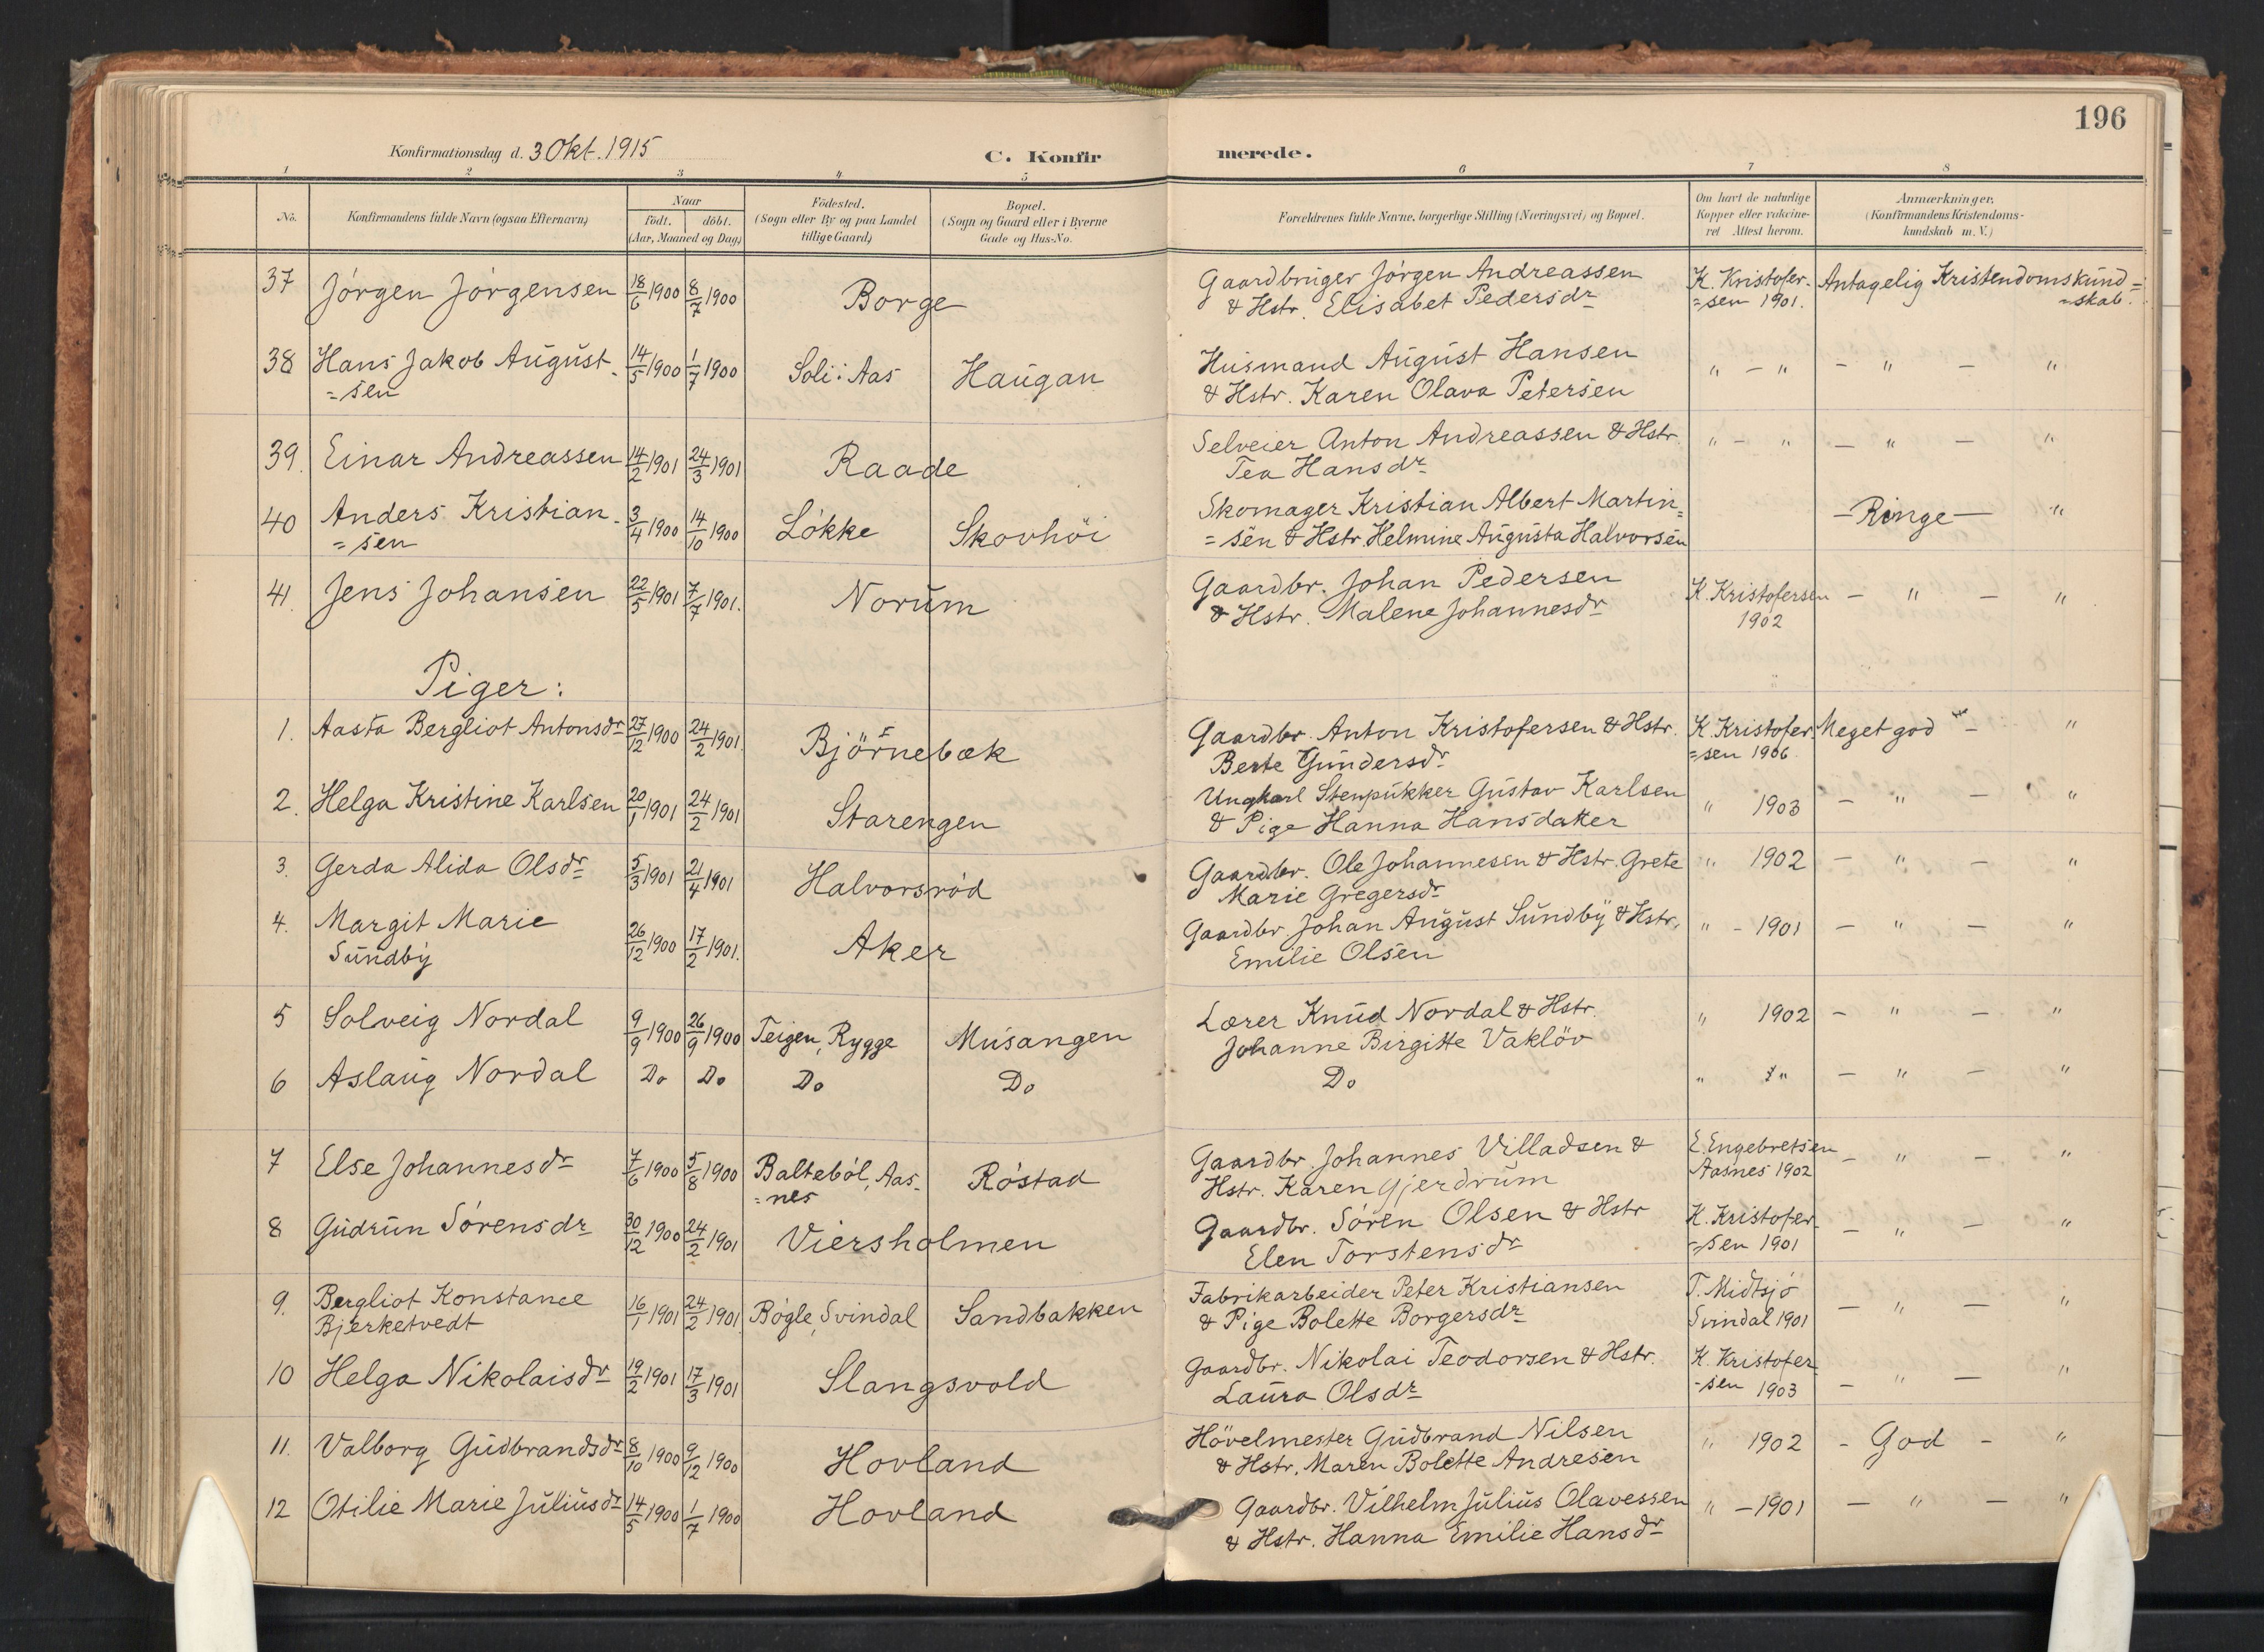 196
Konfirmationsdag d. 3 Okt. 1915
C. Konfirmerede.
1 2 3 4 5 6 7 8
No. Konfirmandens fulde Navn (ogsaa Efternavn) Naar födt. döbt. (Aar, Maaned og Dag.) Födested. (Sogn eller By og paa Landet tillige Gaard.) Bopæl. (Sogn og Gaard eller i Byerne Gade og Hus-No. Forældrenes fulde Navne, borgerlige Stilling (Næringsvei) og Bopæl. Om havt de naturlige Kopper eller vakcineret Attest herom. Anmærkninger. (Konfirmandens Kristendomskundskab m. V.)
37 Jörgen Jörgensen 18/6 1900 8/7 1900 Borge Gaardbruger Jörgen Andreassen K. Kristofer- Antagelig Kristendomskund=
& Hstr. Elisabet Pedersdr =sen 1901. =skab.
38 Hans Jakob August- 14/5 1900 1/7 1900 Soli: Aas Haugan Husmand August Hansen " - " - " - "
=sen & Hstr. Karen Olava Petersen
39. Einar Andreassen 14/2 1901 24/3 1901 Raade Selveier Anton Andreassen & Hstr. " - " - " - "
Tea Hansdr
40 Anders Kristian- 3/4 1900 14/10 1900 Lökke Skovhöi Skomager Kristian Albert Martin= - Ringe - "
=sen =sen & Hstr. Helmine Augusta Halvorsen
41. Jens Johansen 22/5 1901 7/7 1901. Norum Gaardbr. Johan Pedersen K. Kristofersen - " - "
& Hstr. Malene Johannesdr 1902
Piger:
1. Aasta Bergliot Antonsdr 27/12 1900 24/2 1901. Björnebæk Gaardbr. Anton Kristofersen & Hstr. K. Kristofer- Meget god - "
Berte Gundersdr =sen 1906
2. Helga Kristine Karlsen 20/1 1901 24/2 1901 Starengen Ungkarl Stenpukker Gustav Karlsen " 1903 - " - "
& Pige Hanna Hansdatter
3. Gerda Alida Olsdr 5/3 1901 21/4 1901 Halvorsröd Gaardbr. Ole Johannesen & Hstr. Grete " 1902 - " - "
Marie Gregersdr
4. Margit Marie 26/12 1900 17/2 1901. Aker Gaardbr. Johan August Sundby & Hstr. " - 1901 - " - "
Sundby Emilie Olsen
5 Solveig Nordal 9/9 1900 26/9 1900 Teigen, Rygge Musangen Lærer Knud Nordal & Hstr. " 1902 - " - "
Johanne Birgitte Vaklöv
6 Aslaug Nordal Do Do Do Do Do " " - " - "
7 Else Johannesdr 7/6 1900 5/8 1900 Balteból, Aas- Röstad Gaardbr. Johannes Villadsen & E. Engebretsen - " - "
=nes Hstr. Karen Gjerdrum Aasnes 1902
8 Gudrun Sörensdr 30/12 1900 24/2 1901 Viersholmen Gaardbr. Sören Olsen & Hstr K. Kristofer- - " - "
Elen Torstensdr =sen 1901
9. Bergliot Konstance 16/1 1901 24/2 1901 Bögle, Svindal Sandbakken Fabrikarbeider Peter Kristiansen T. Midtsjö - " - "
Bjerketvedt & Pige Bolette Borgersdr Svindal 1901
10 Helga Nikolaisdr 19/2 1901 17/3 1901 Slangsvold Gaardbr. Nikolai Teodorsen & Hstr. K. Kristofer- - " - "
Laura Olsdr -sen 1903
11. Valborg Gudbrandsdr 8/10 1900 9/12 1900 Hovland Hövelmester Gudbrand Nilsen " 1902 - God - "
& Hstr. Maren Bolette Andresen
12 Otilie Marie Juliusdr 14/5 1900 1/7 1900 Hovland Gaardbr. Vilhelm Julius Olavessen " - 1901 - " - "
& Hstr. Hanna Emilie Hansdr